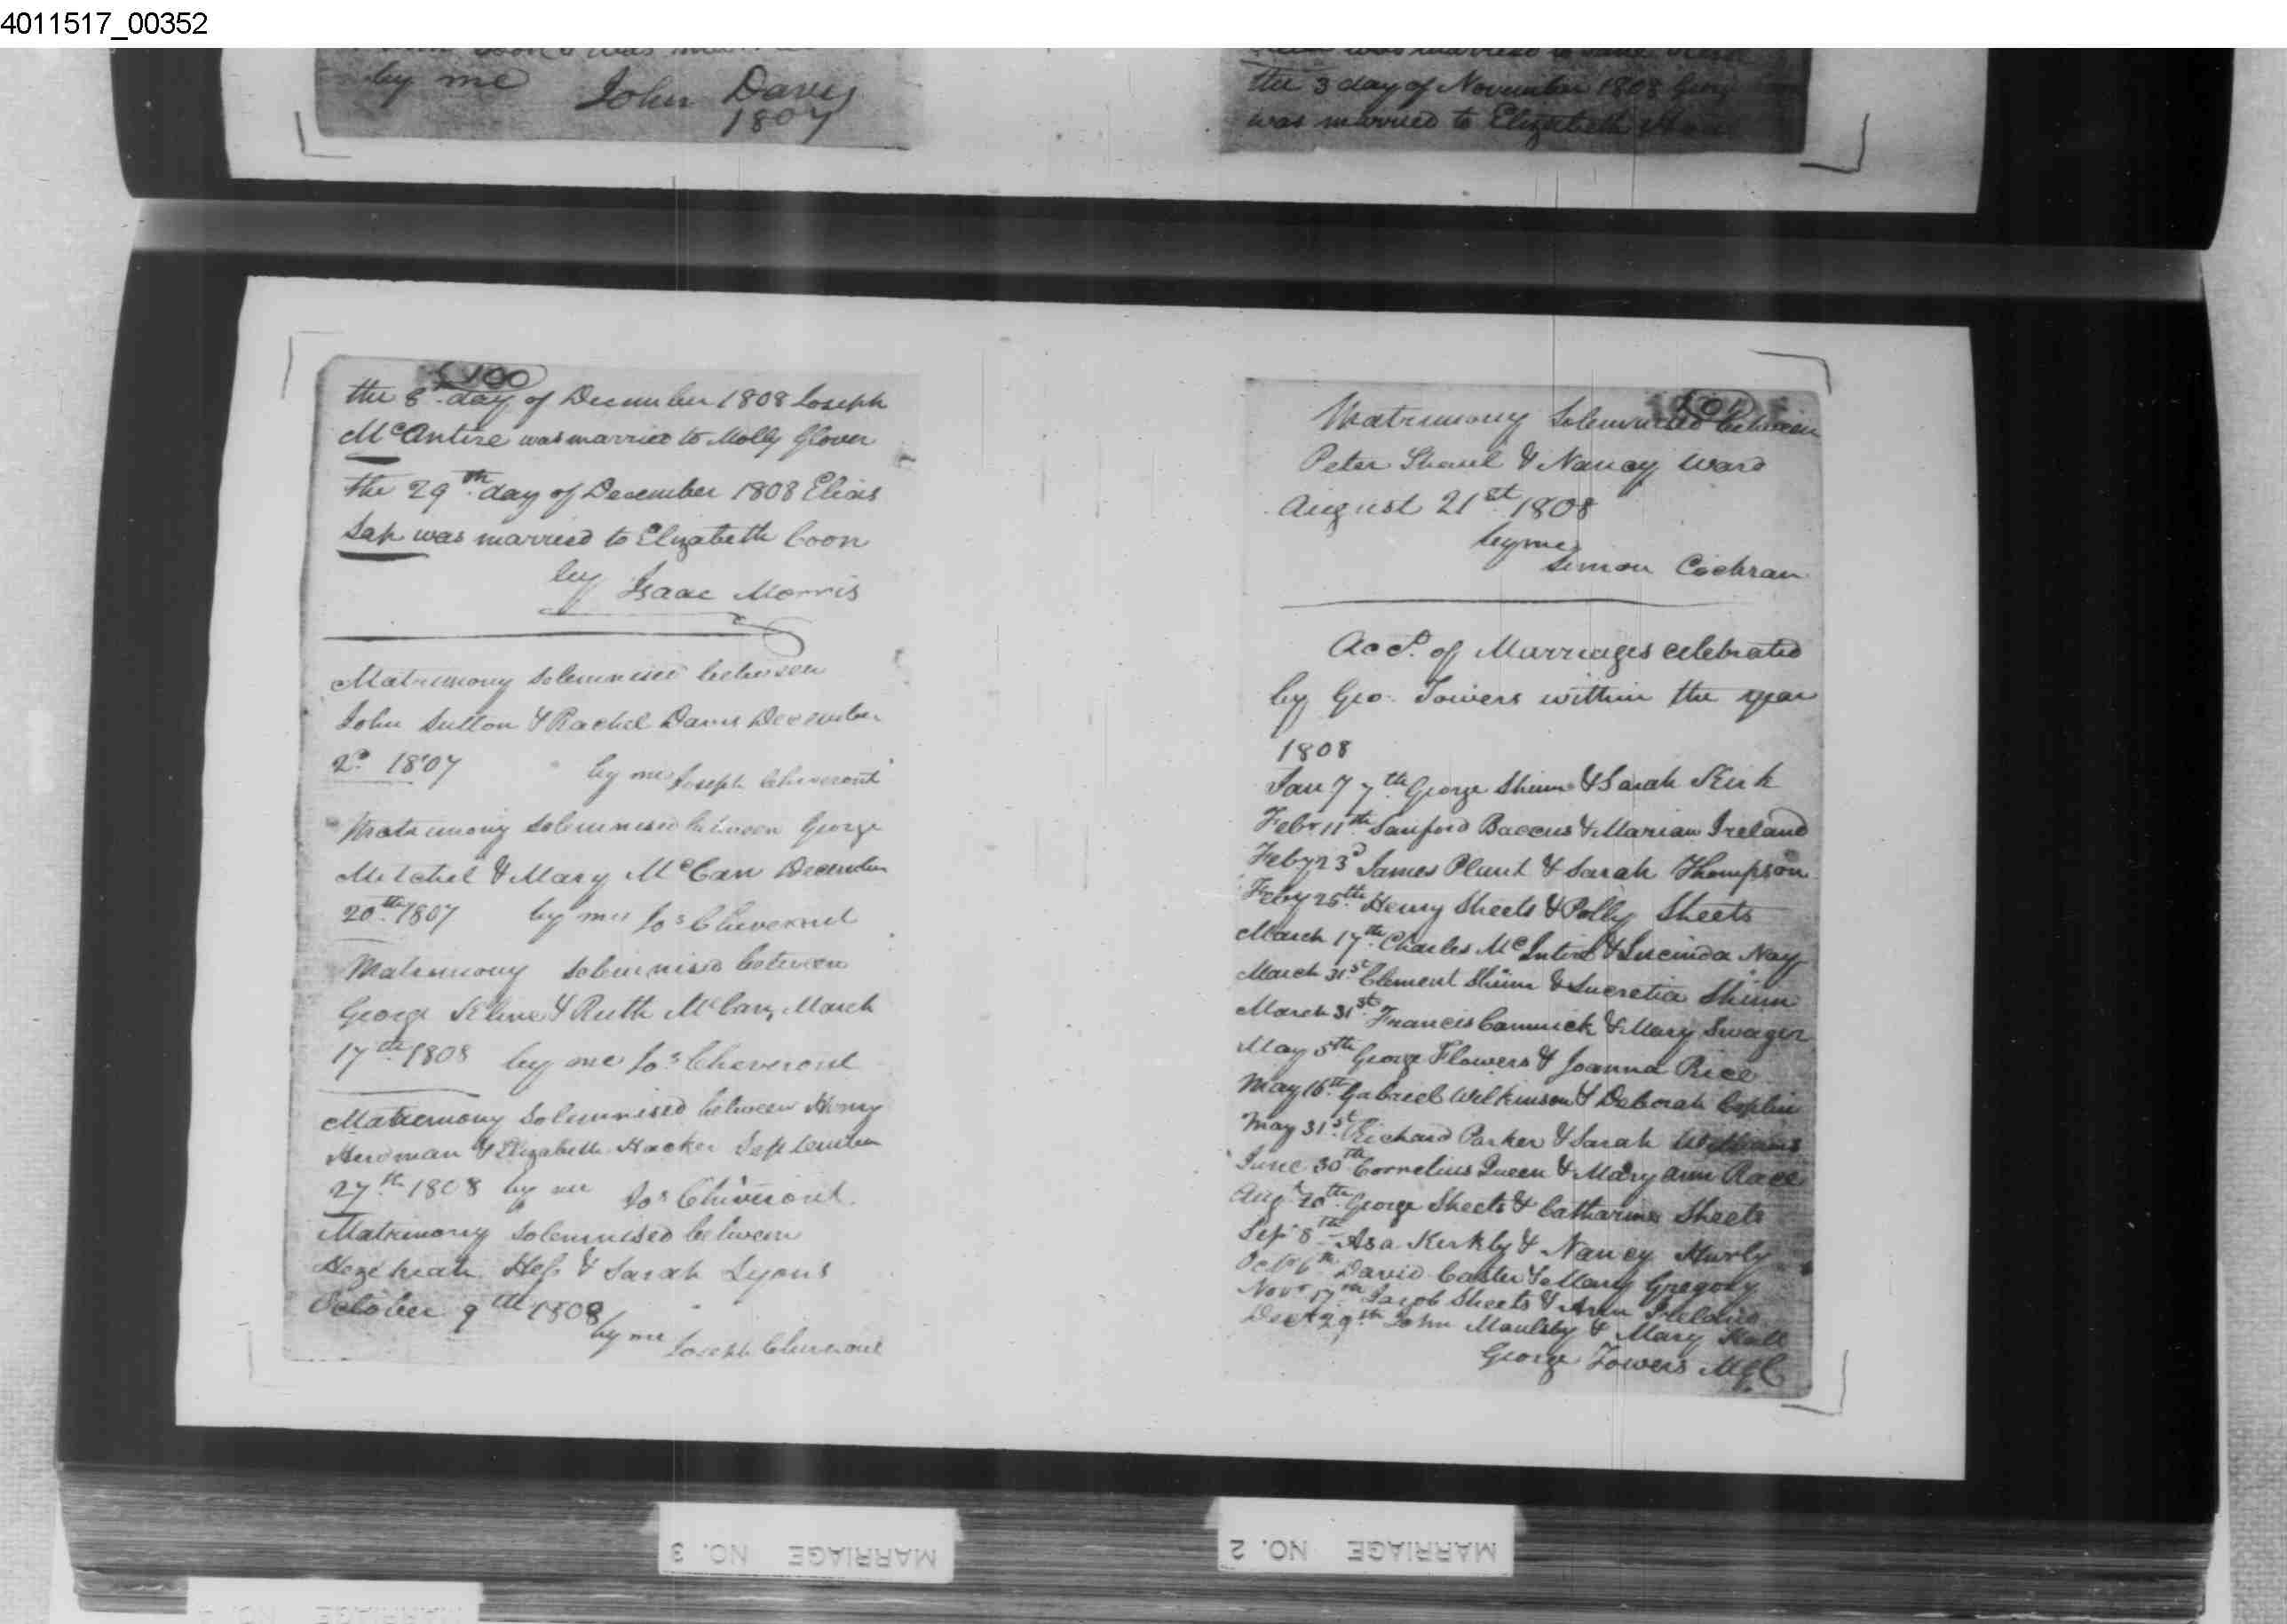 4011517_00352
by me John Davis
1807
the 3 day of November 1808
was married to Elizabeth
100
the 8th day of December 1808 Joseph
McAntire was married to Molly Glover
the 29th day of December 1808 Elias
Sap was married to Elizabeth Coon
by Isaac Morris
Matrimony Solemnised between
John Sutton & Rachel Davis December
2d 1807 by me Joseph Cheveront
Matrimony Solemnised between George
Mitchel & Mary McCan December
20th 1807 by me Jos Cheveront
Matrimony Solemnised between
George Kline & Ruth McCan March
17th 1808 by me Jos Cheveront
Matremony Solemnised between Henry
Hurdman & Elizabeth Hacker September
27th 1808 by me Jos Cheveront
Matrimony Solemnised between
Hezekiah Hess & Sarah Lyons
October 9th 1808
by me Joseph Cheveront
101
Matrimony Solemnised between
Peter & Nancy Ward
August 21st 1808
by me
Simon Cochran
Acct. of Marriages celebrated
by Geo. Towers within the year
1808
Jan 7 7th George Shinn & Sarah Kirk
Febr 11th Sanford Baccus & Marian Ireland
Feby 23d James Plant & Sarah Thompson
Feby 25th Henry Sheets & Polly Sheets
March 17th Charles McIntire & Lucinda Nay
March 31st Clement Shinn & Lucretia Shinn
March 31st Francis Cammick & Mary Swager
May 5th George Flowers & Joanna Rice
May 16th Gabriel Wilkinson & Deborah Coplin
May 31st Richard Parker & Sarah Williams
June 30th Cornelius Queen & Mary ann Race
Augt 20th George Sheets & Catharine Sheets
Sepr 8th Asa Kerkby & Nancy Hurly
Octr 6th David Caster & Mary Gregory
Novr 17th Jacob Sheets & Ann Ireland
Dect 29th John Maulsby & Mary Hall
George Towers MGC
MARRIAGE NO. 3
MARRIAGE NO. 2
MARRIAGE NO.